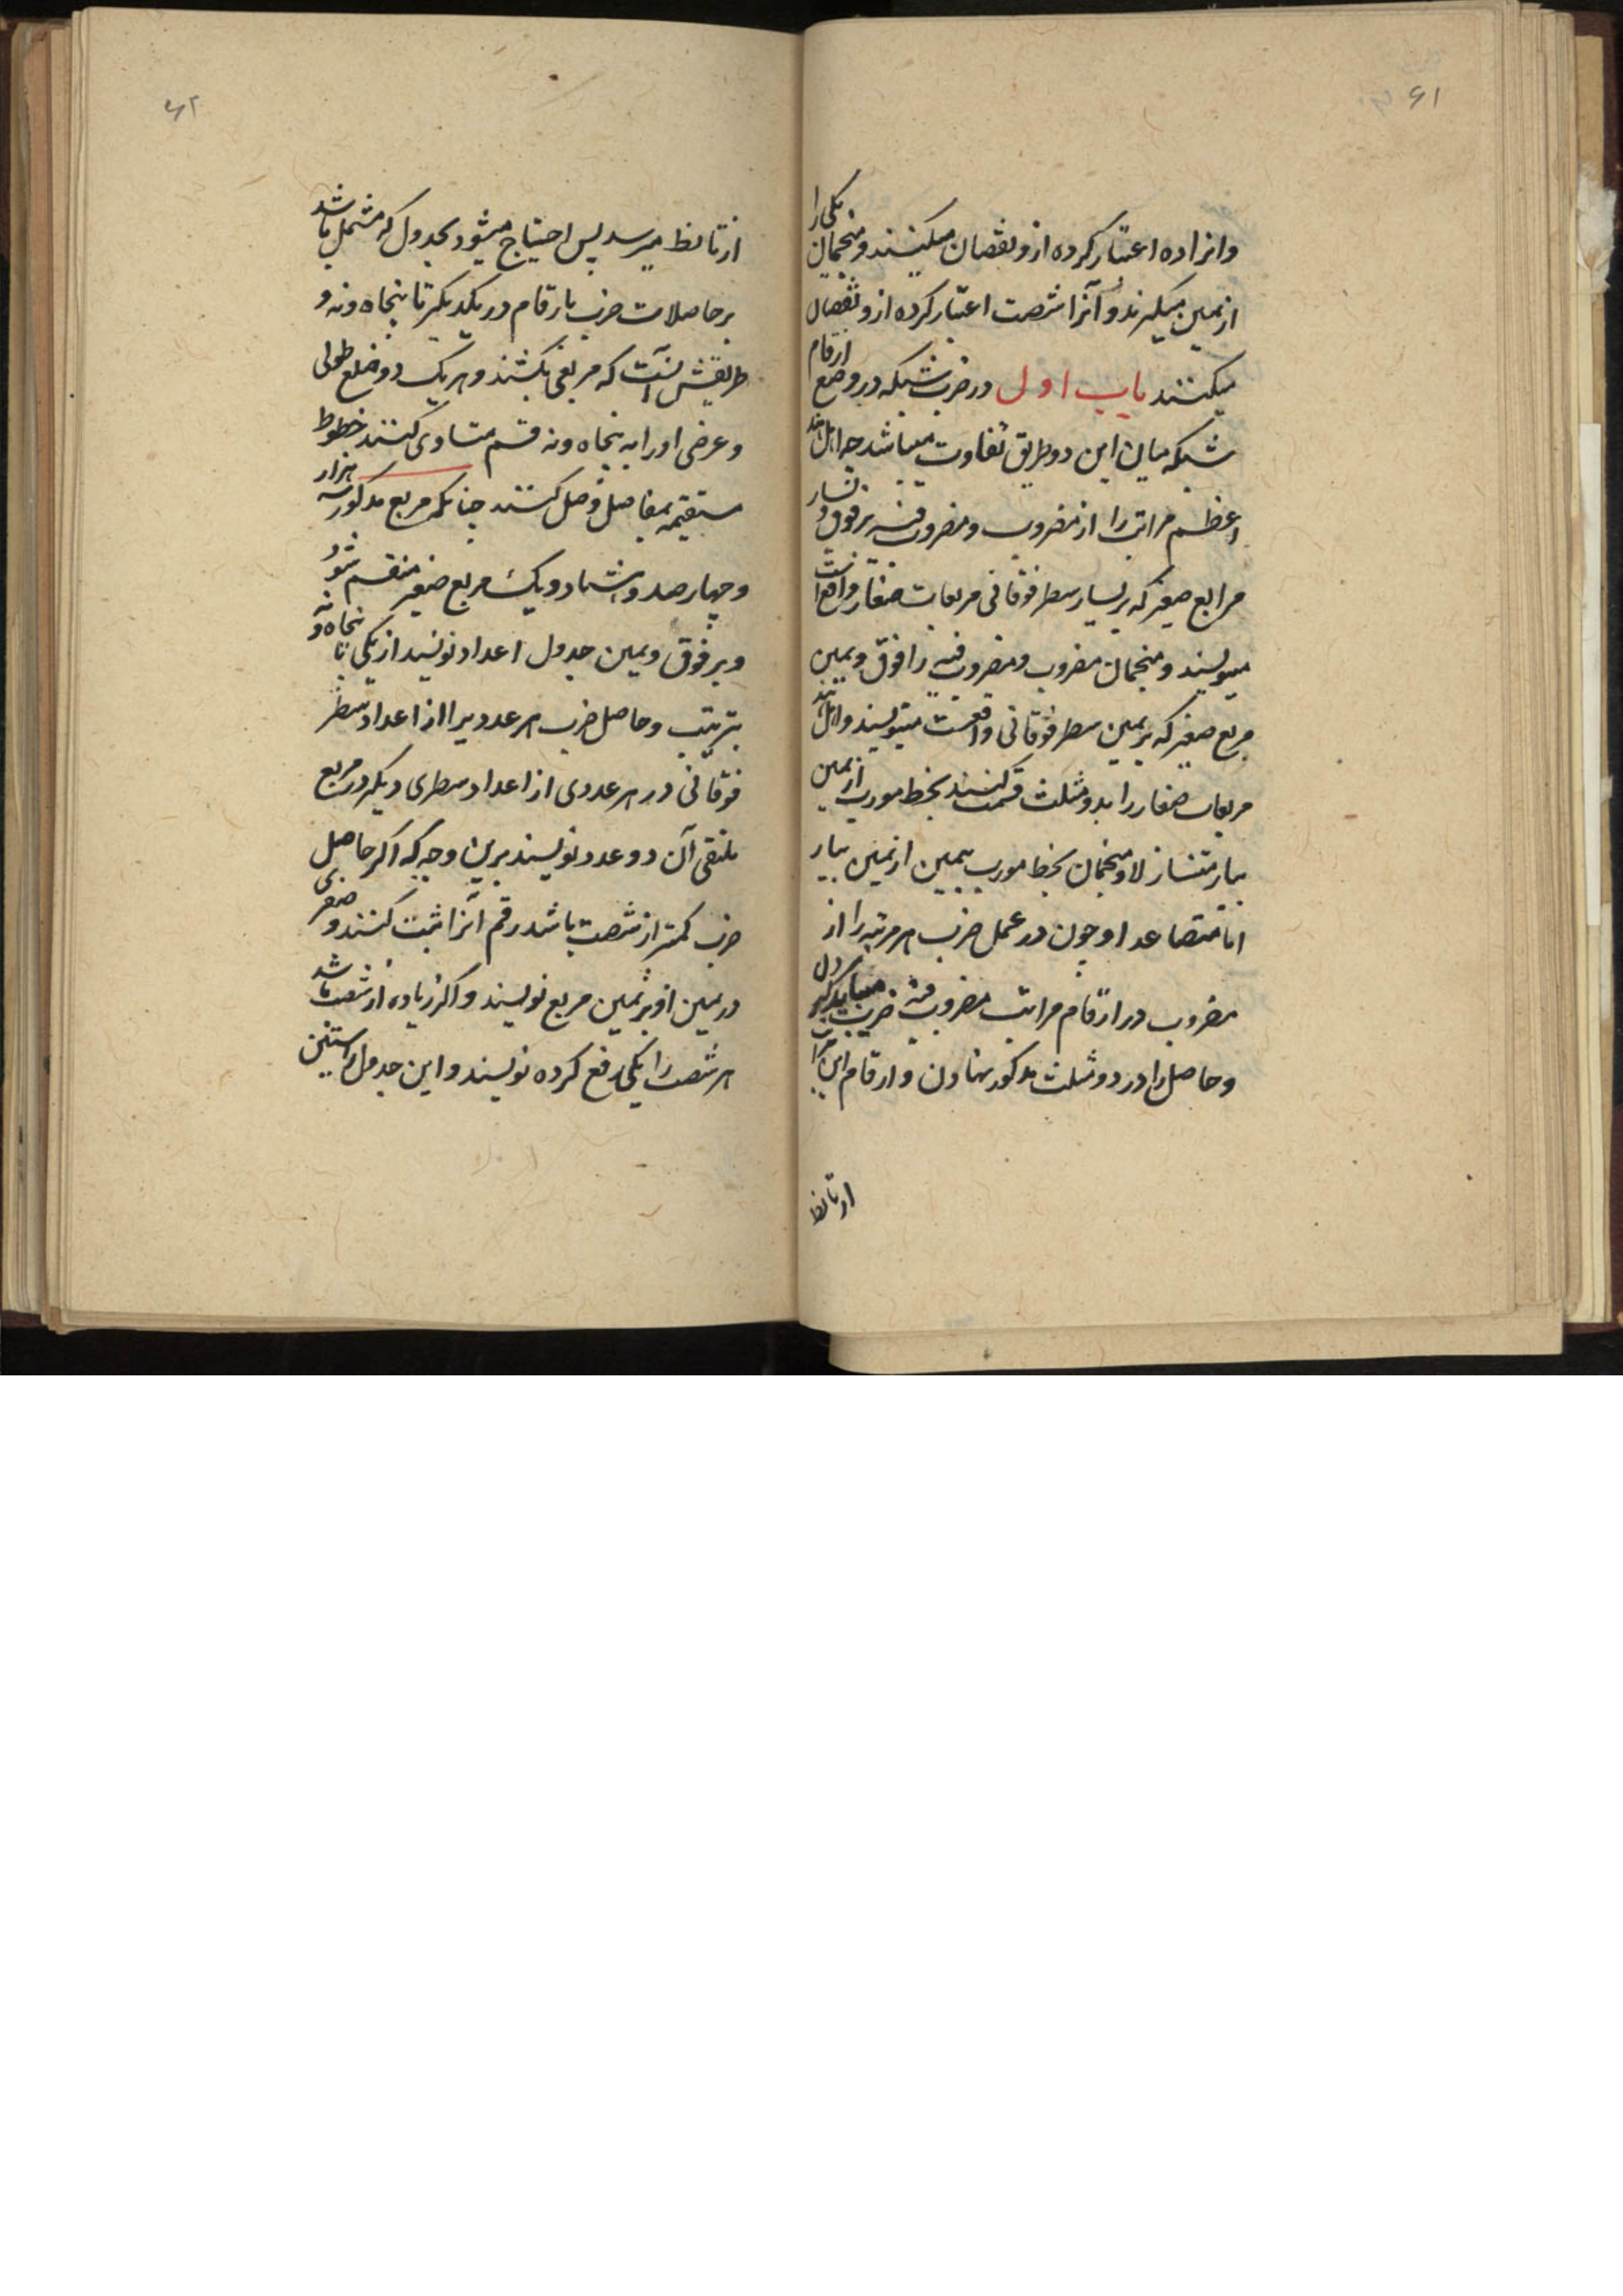 ۶۱
وانرا ده اعتبار کرده ازو نقصان میکنند و منجمان یکی را
از یمین میگیرند و آنرا شصت اعتبار کرده ازو نقصان
میکنند باب اول در ضرب شبکه در وضع ارقام
شبکه میان این دو طریق تفاوت میباشد چه اهل هند
اعظم مراتب را از مضروب و مضروب فیه بر فوق و یسار
مرابع صغیر که بر یسار سطر فوقانی مربعات صغار واقع است
مینویسند و منجمان مضروب و مضروب فیه را فوق و یمین
مربع صغیر که بر یمین سطر فوقانی واقعست مینویسند و اهل هند
مربعات صغار را بدو مثلث قسمت کنند بخط مورب از یمین
بیسار متنازلا و منجمان بخط مورب از یمین بیسار
اما متصاعدا و چون در عمل ضرب هر مرتبه را از
مضروب در ارقام مراتب مضروب فیه ضرب میباید کرد
و حاصل را در دو مثلث مذکور نهادن و ارقام این مراتب
از تا نط
۶۲
از تا نط میرسد پس احتیاج میشود بجدول که مشتمل باشد
بر حاصلات ضرب ارقام در یکدیگر تا پنجاه و نه و
طریقش آنست که مربعی بکشند و هر یک دو ضلع طولی
و عرضی او را به پنجاه و نه قسم متساوی کنند خطوط
مستقیمه بمفاصل وصل کنند چنانکه مربع مذکور سه هزار
و چهار صد و هشتاد و یک مربع صغیر منقسم شود
و بر فوق و یمین جدول اعداد نویسند از یکی تا پنجاه و نه
بترتیب و حاصل ضرب هر عددیرا از اعداد سطر
فوقانی در هر عددی از اعداد سطری دیگر در مربع
ملتقی آن دو عدد نویسند برین وجه که اگر حاصل
ضرب کمتر از شصت باشد رقم آنرا ثبت کنند و صفری
در یمین او بر یمین مربع نویسند و اگر زیاده از شصت باشد
هر شصت را یکی رفع کرده نویسند و این جدول را ستین